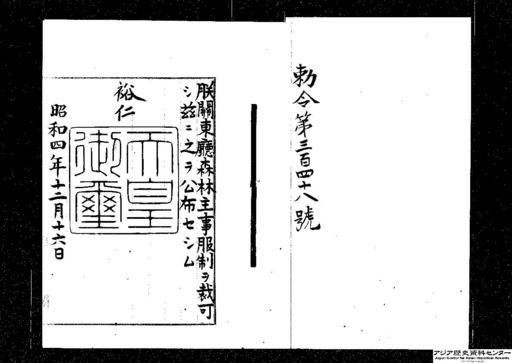 勅令第三百四十八號
朕關東廳森林主事服制ヲ裁可
シ茲ニ之ヲ公布セシム
裕仁
天皇
御璽
昭和四年十二月十六日
アジア歴史資料センター
Japan Center for Asian Historical Records